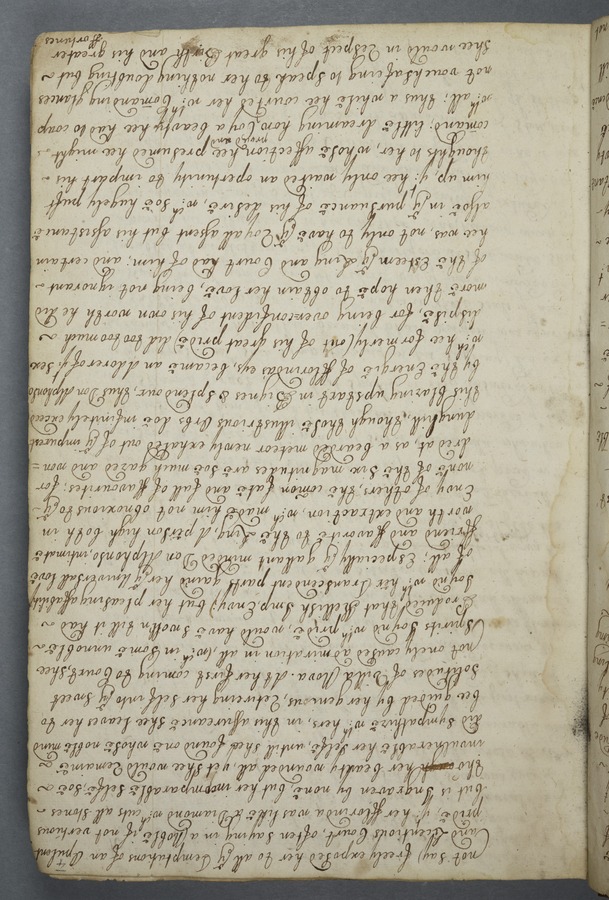 not say) freely exposed her to all yᵉ Temptations of an Opulent
and Licentious Court, often saying in a Noble yᵗ not vertuous
pride yᵗ her fflorinda was like yᵉ Diamond wᶜʰ cuts all stones
but is Ingraven by none, but her incomparable selfe, soe ~
though her beavty wounded all yet shee would Remaine
invulnerable her selfe, until shee found one whose noble mind
did Sympathize wᵗʰ hers, in this assureance shee leaves her to
bee guided by her own genious, Retireing her selfe into yᵉ sweet
Solitudes of Nova. At her first coming to Court, shee
not only caused admiration in all, but, in Some unnoble ~
Spirits Envie wᶜʰ would have swolln till it had
Produced that Hellish Imp Envy) but her pleasing affability
Joyned wᵗʰ her Transcendent parts gaind her yᵉ Universall Love
of all; Especially yᵉ gallant minded Don Alphonso, intimate
ffriend and ffavorite to the King A person high both in
worth and extraction, wᶜʰ made him not obnoxious to yᵉ
Envy of others, the comon fate and fall of ffavourites; for
none of the Six magnitudes are soe much gazed and won =
dred at, as a bearded meteor newly exhaled out of yᵉ impurest
dunghill, though those illustrious Orbs doe infinitely exceed
this blazing upstart in Signes & Splendour, thus Don Alphonso
by the Energie of fflorindas eys, became an adorer of yᵉ sex
wᶜʰ hee formerly (out of his great pride did too too much ~
dispise for being overconfident of his own worth he did
more then hope to obtain her Love, being not ignorant ~
of the Esteem yᵉ King and Court had of him; and certain
hee was, not only to have yᵉ Royall assent but his assistance
allsoe in yᵉ pursuance of his desire, wᶜʰ soe hugely puft
him up, yᵗ hee only waited an opertunity to impart his ~
thoughts to her, whose affection hee presumed hee might ~
comand; little dreaming how Low a beavty hee had to coap
wᵗʰ all; thus a while hee courted her wᵗʰ Comanding glances
not vouchsafeing to Speak to her nothing doubting but ~
Shee would in Respect of his great Birth and his greater
ffortunes